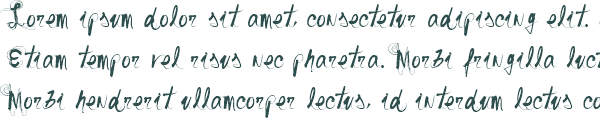 Lorem ipsum dolor sit amet, consectetur adipiscing elit.
Etiam tempor vel risus nec pharetra. Morbi fringilla luct
Morbi hendrerit ullamcorper lectus, id interdum lectus co